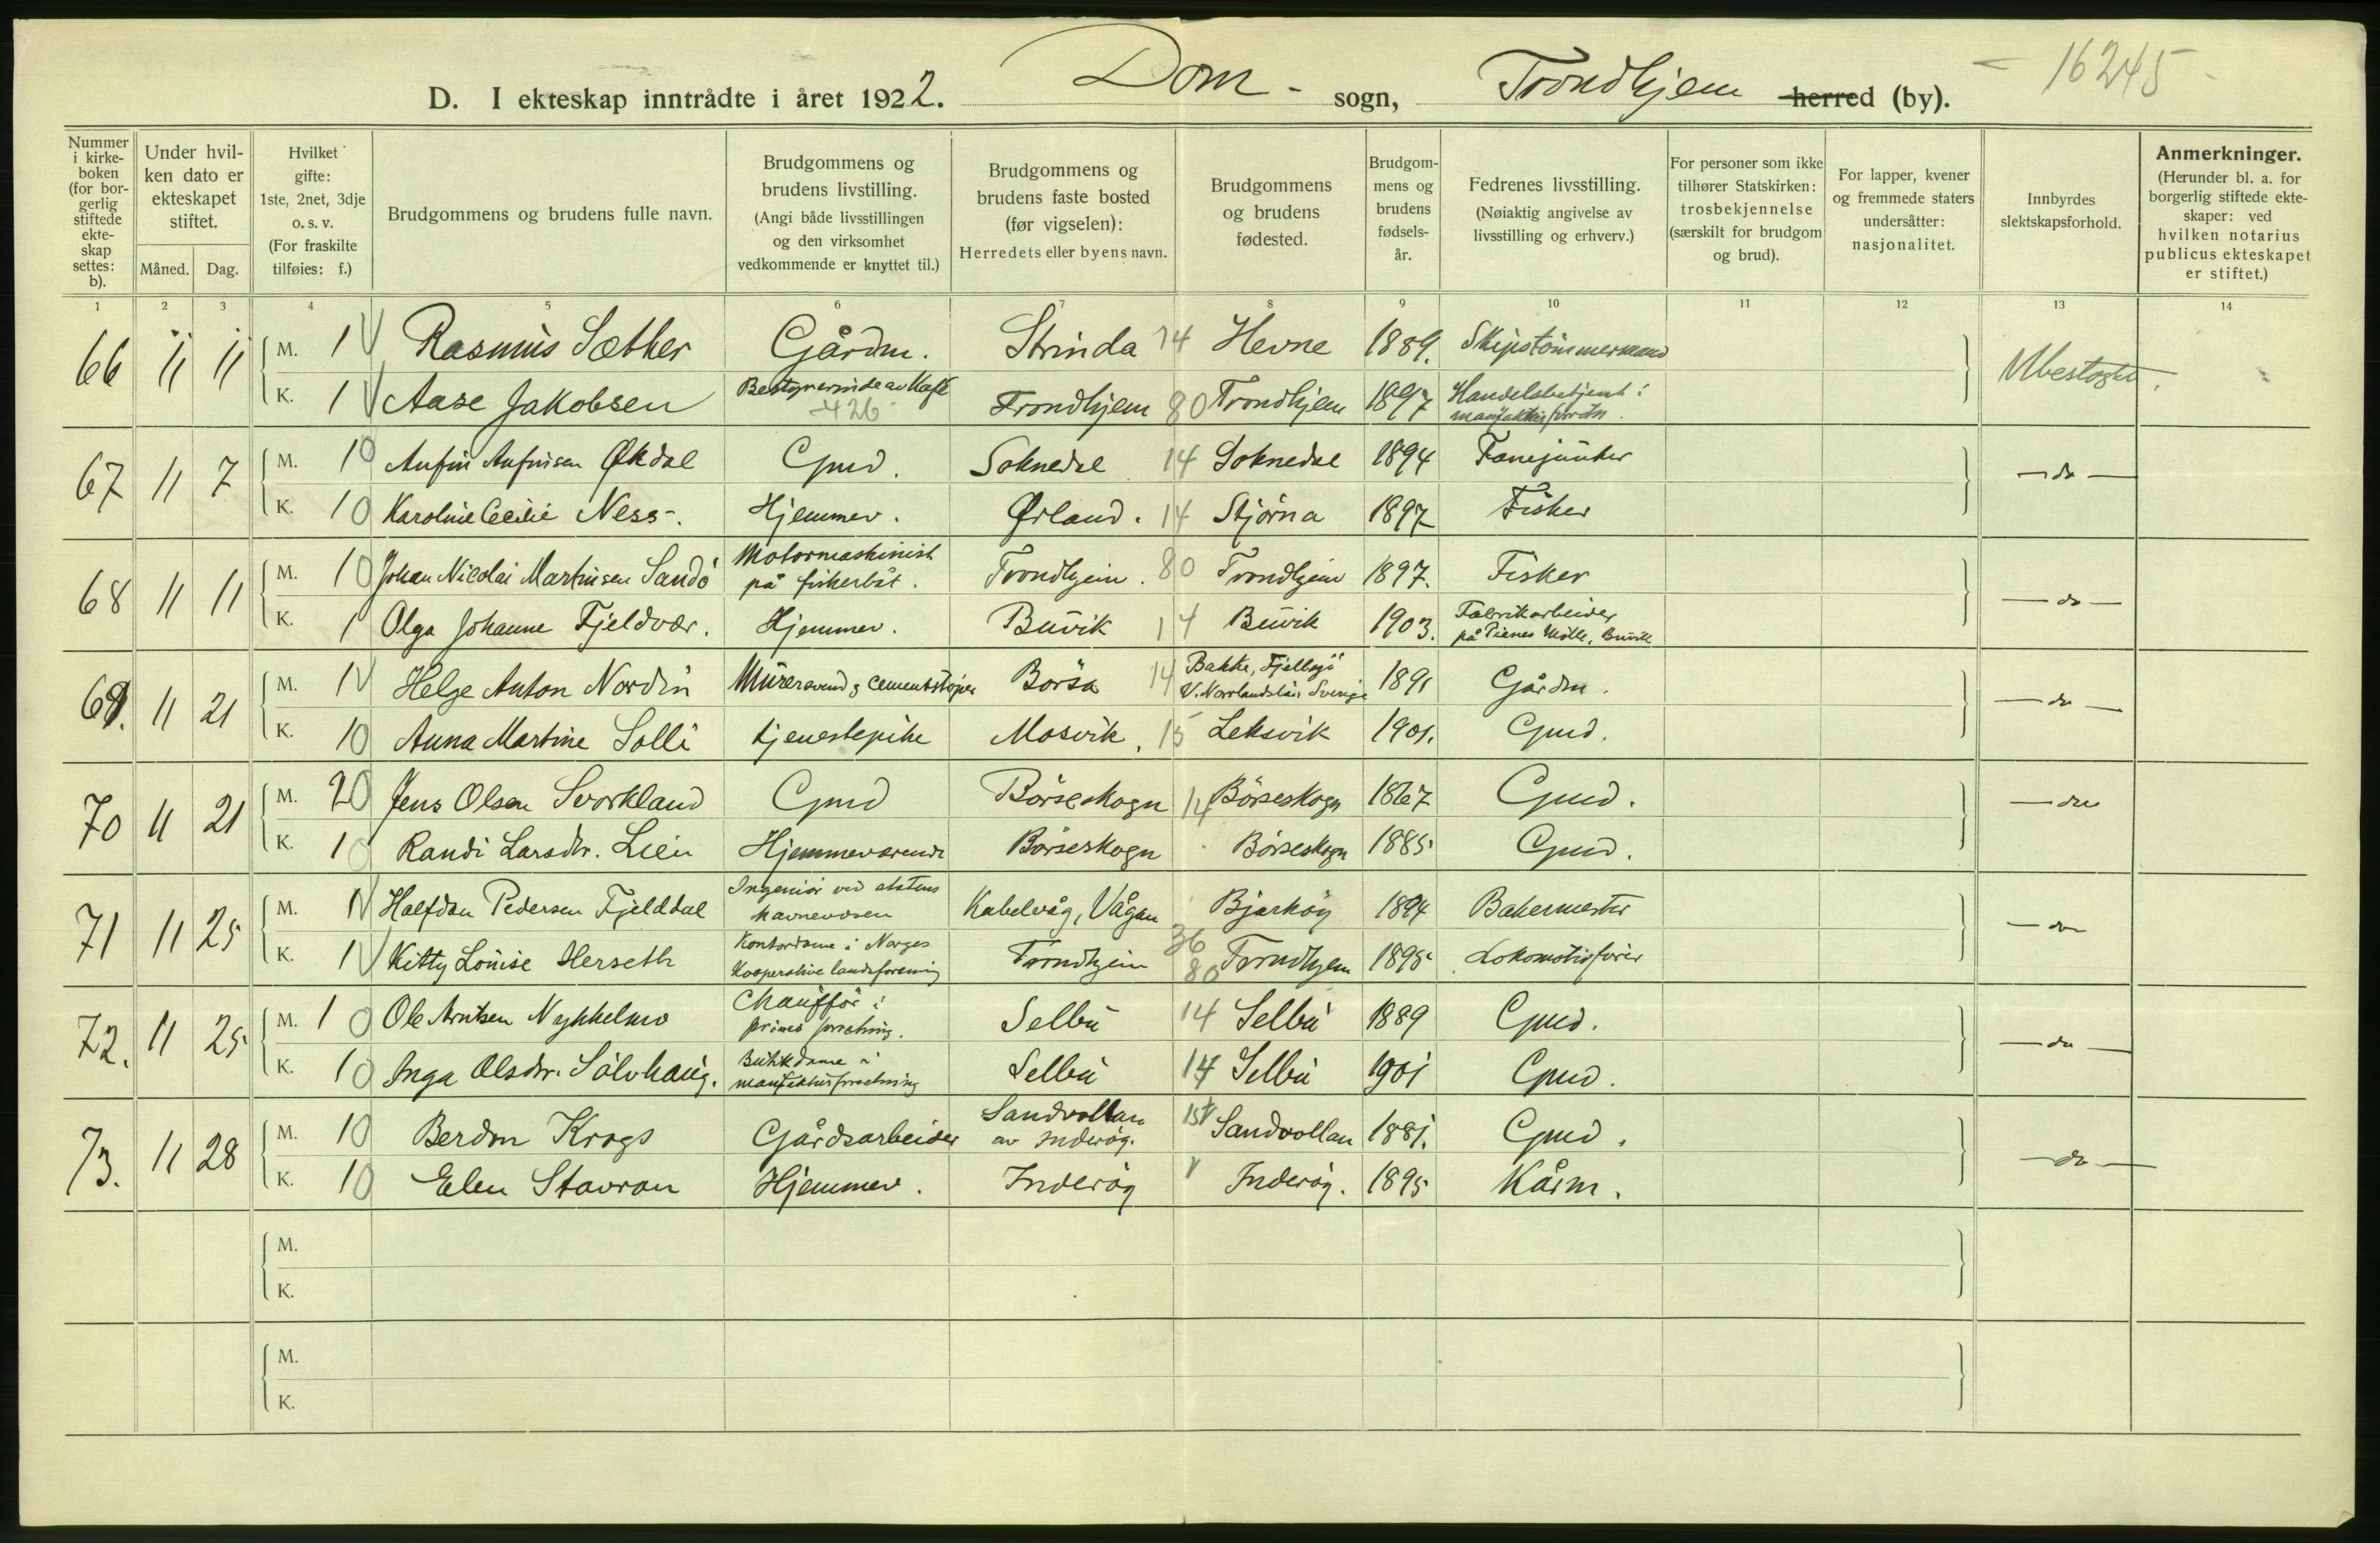 16245
D. I ekteskap inntrådte i året 1922. Dom- sogn, Trondhjem herred (by).
Nummer i kirke-boken (for bor-gerlig stiftede ekte-skap settes: b).
Under hvil-ken dato er ekteskapet stiftet.
Måned. Dag.
Hvilket gifte: 1ste, 2net, 3dje o. s. v. (For fraskilte tilføies: f.)
Brudgommens og brudens fulle navn.
Brudgommens og brudens livstilling. (Angi både livsstillingen og den virksomhet vedkommende er knyttet til.)
Brudgommens og brudens faste bosted (før vigselen): Herredets eller byens navn.
Brudgommens og brudens fødested.
Brudgom-mens og brudens fødsels-år.
Fedrenes livsstilling. (Nøiaktig angivelse av livsstilling og erhverv.)
For personer som ikke tilhører Statskirken: trosbekjennelse (særskilt for brudgom og brud).
For lapper, kvener og fremmede staters undersåtter: nasjonalitet.
Innbyrdes slektskapsforhold.
Anmerkninger. (Herunder bl. a. for borgerlig stiftede ekte-skaper: ved hvilken notarius publicus ekteskapet er stiftet.)
1 2 3 4 5 6 7 8 9 10 11 12 13 14
66 11 11 M. 1 Rasmus Sæther Gårdm. Strinda 14 Hevne 1889. Skipstømmermand Ubeslegtet.
K. 1 Aase Jakobsen Bestyrerinde av Kafé 426 Trondhjem 80 Trondhjem 1897 Handelsbetjent i manufakturforretn.
67 11 7 M. 1 0 Anfin Anfinsen Økdal Gmd. Soknedal 14 Soknedal 1894 Fanejunker — do —
K. 1 0 Karoline Cecilie Ness. Hjemmev. Ørland. 14 Stjørna 1897 Fisker
68 11 11 M. 1 0 Johan Nicolai Martinsen Sandö Motormaskinist på fiskerbåt. Trondhjem. 80 Trondhjem 1897. Fisker — do —
K. 1 Olga Johanne Fjeldvær. Hjemmev. Buvik 14 Buvik 1903. Fabrikarbeider på Pienes Mölle, Buvik
69. 11 21 M. 1 Helge Anton Nordin Murersvend & cementstöper Börsa 14 Bakke, Fjellsjö V. Norrlandslän Sverige 1891 Gårdm. — do —
K. 1 0 Anna Martine Solli tjenestepike Mosvik. 15 Leksvik 1901. Gmd.
70 11 21 M. 2 0 Jens Olsen Svorkland Gmd Börseskogn 14 Börseskogn 1867 Gmd. — do
K. 1 0 Randi Larsdtr. Lien Hjemmeværende Börseskogn Börseskogn 1885 Gmd.
71 11 25 M. 1 Halfdan Pedersen Fjelddal Ingeniör ved statens havnevæsen Kabelvåg, Vågan Bjarköy 1894 Bakermester — do
K. 1 Kitty Louise Herseth Kontordame i Norges Kooperative landsforening Trondhjem 36 80 Trondhjem 1895 Lokomotivförer
72. 11 25 M. 1 0 Ole Arntsen Nykkelmo Chaufför i forretning. Selbu 14 Selbu 1889 Gmd. — do —
K. 1 0 Inga Olsdtr. Sölvhaug. Butikdame i manufakturforretning Selbu 14 Selbu 1901 Gmd.
73. 11 28 M. 1 0 Berdon Krogs Gårdsarbeider Sandvollan av Inderöy. 15 Sandvollan 1881. Gmd. — do —
K. 1 0 Elen Stavran Hjemmev. Inderöy Inderöy. 1895 Kårm.
M.
K.
M.
K.